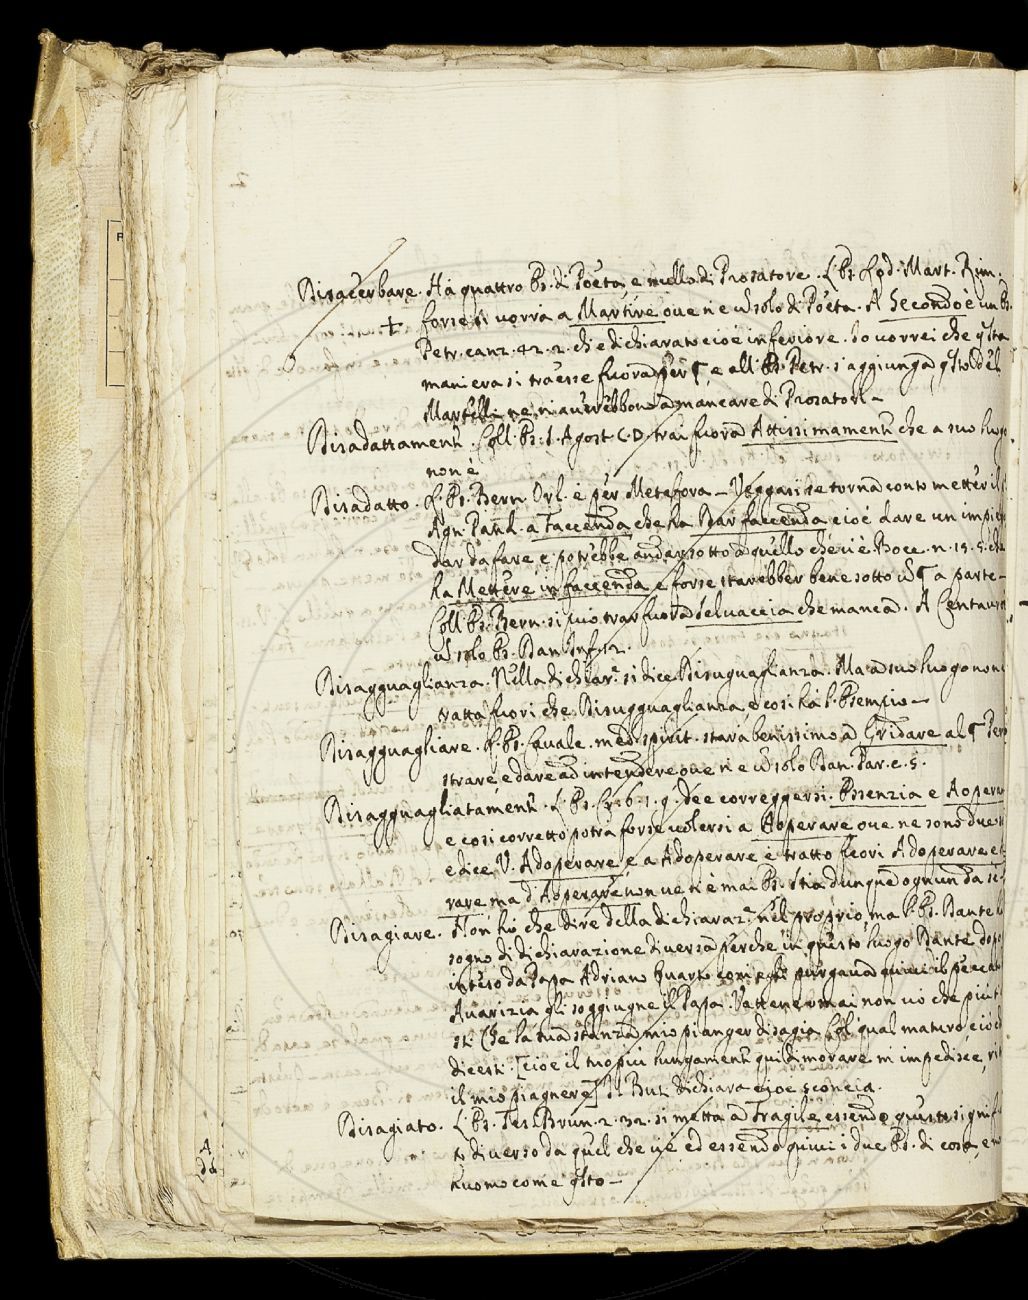 Disacerbare. Ha quattro Es. di Poeta, e nullo di Prosatore. L'Es. Lod. Mart. Rim.
+ forse si vorrà a Martire ove n'è uno solo di Poeta. A Secondo è un Es.
Petr. canz. 42. 2. ch'è dichiarato cioè inferiore. Io vorrei che qsta
maniera si traesse fuora per ¶, e all'Es. Petr. s'aggiunga qsto del
Martelli ne ni avrebbono a mancare di Prosatori –
Disadattament. Coll'Es. S. Agost. C. D. trai fuora Attissimament che a suo luogo
non è
Disadatto. L'Es. Bern. Orl. è per Metafora – Veggasi se torna conto metter il
Agn. Pand. a Faccenda che ha Dar faccenda cioè dare un impie
dar da fare e potrebbe andar sotto a quello che vi è Bocc. n. 15. 5. che
ha Mettere in faccenda e forse starebber bene sotto un ¶ a parte –
Coll'Es. Bern. si può trar fuora Selvaccia che manca. A Centauro
un solo Es. Dan. Inf. 12.
Disagguaglianza. Nella dichiar.e si dice Disuguaglianza. Ma a suo luogo non è
tratta fuori che Disugguaglianza, e così ha l'Esempio –
Disagguagliare. L'Es. Cavalc. med. spirit. starà benissimo a Gridare al ¶ Per
strare, e dare ad intendere ove n'è un solo Dan. Par. c. 5.
Disagguagliatament. L'Es. Cr. 6. 1. 9. dee correggersi. Essenzia e Aopera
e così corretto potrà forse volersi a Aoperare ove ne sono due
e dice V. Adoperare, e a Adoperare è tratto fuori Adoperare, e
rare ma d'Aoperare non ve n'è mai Es. Stia dunque ognun da se
Disagiare. Non ho che dire della dichiaraz.e nel proprio, ma l'Es. Dante
sogno di dichiarazione diversa perche in questo luogo Dante dopo
inteso da Papa Adriano Quarto com'egli purgava quivi il peccat
Avarizia gli soggiugne il Papa. Vattene omai non vo' che più t
sti. Che la tua stanza mio pianger disagia Col qual maturo ciò ch
dicesti. [cioè il tuo più lungament qui dimorare m'impedisce,
il mio piagnere] Il But. dichiara cioè sconcia.
Disagiato. L'Es. Tes. Brun. 2. 32. si metta a Fragile essendo questo signif
to diverso da quel che v'è ed essendo quivi i due Es. di cosa, e
huomo come qsto –